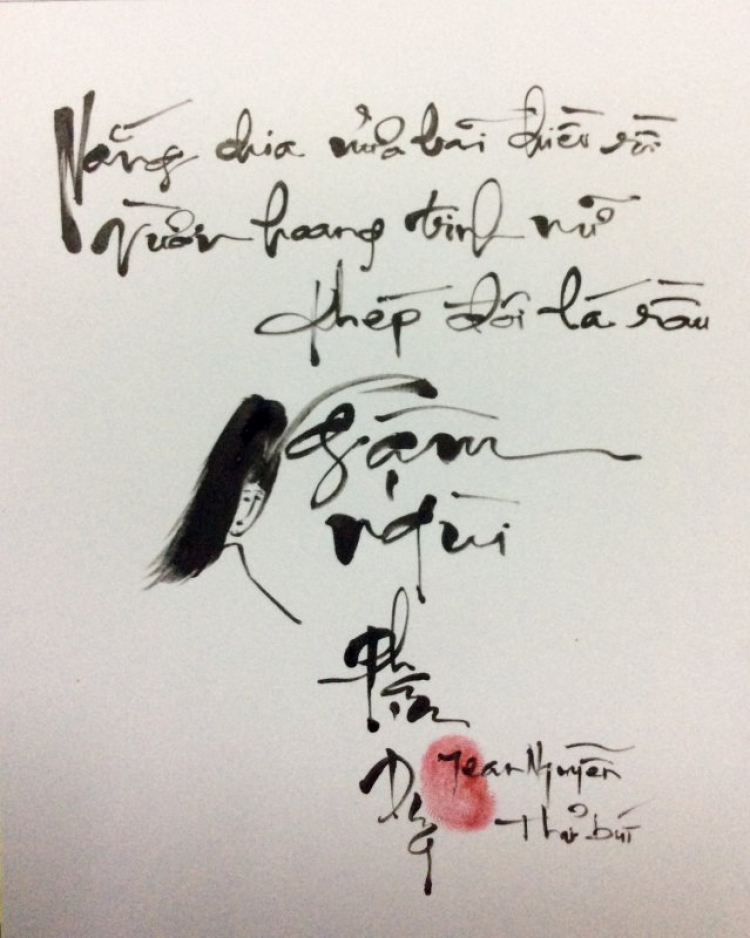 Nắng chia nửa bãi chiều rồi
Vườn hoang trinh nữ
khép đôi lá rầu
Ngậm
ngùi
Phạm
Duy
Jean Nguyễn
Thủ bút